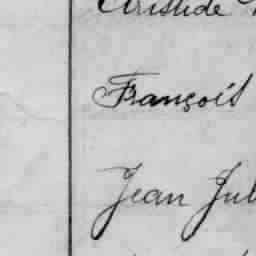 Aristide
François
Jean Jul